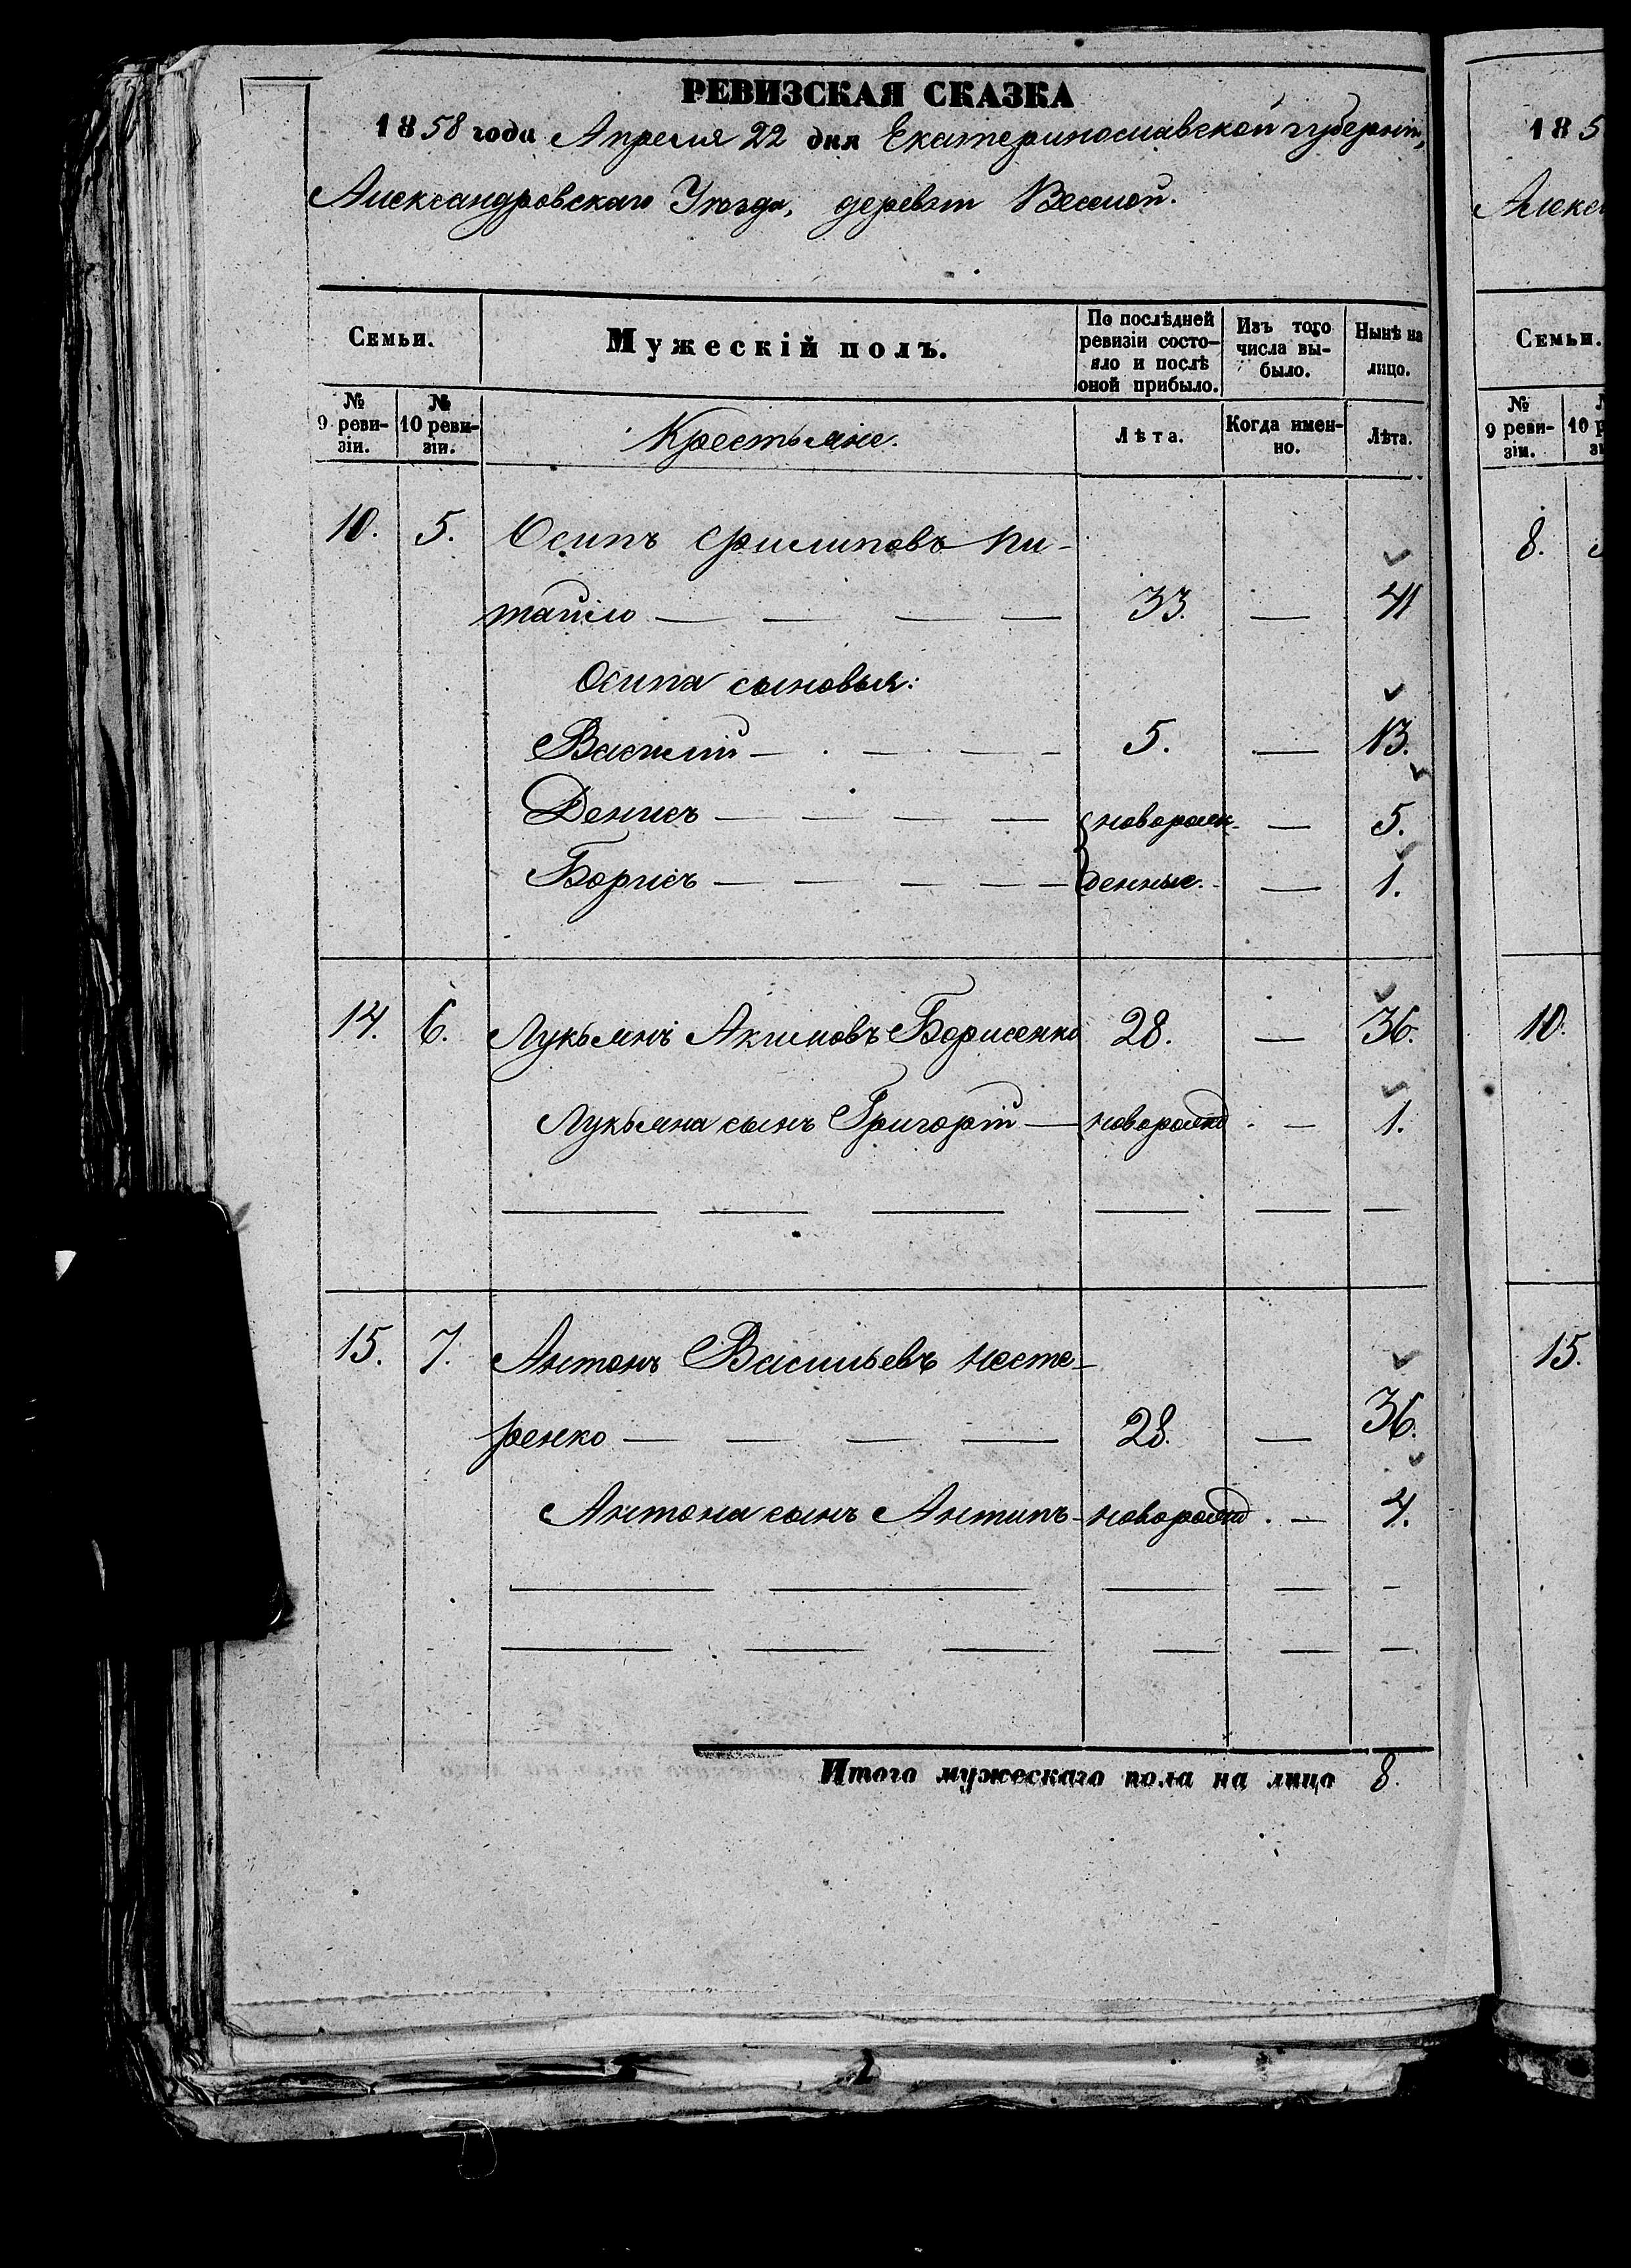 РЕВИЗСКАЯ СКАЗКА
1858 года Апреля 22 дня Екатеринославской губерніи,
Александровскаго Уѣзда, деревни Веселой.
Семьи.
Мужескій полъ.
По послѣдней ревизіи состо-
яло и послѣ оной прибыло.
Изъ того числа вы-
было.
Нынѣ на лицо.
№ 9 реви-
зіи.
№ 10 реви-
зіи.
Крестьяне.
Лѣта.
Когда имен-
но.
Лѣта.
10. 5. Осипъ Филиповъ Пи-
тайло — — — — 33. — 41
Осипа сыновья:
Василій — — — — 5. — 13.
Денисъ — — — — новорож- — 5.
Борисъ — — — — денные. — 1.
14. 6. Лукьянъ Акимовъ Борисенко 28. — 36.
Лукьяна сынъ Григорій — новорожд. — 1.
15. 7. Антонъ Васильевъ Несте-
ренко — — — — 28. — 36.
Антона сынъ Антипъ - новорожд. — 4.
Итого мужескаго пола на лицо 8.
185
Алекс
Семьи.
№ 9 реви-
зіи.
10
8.
10.
15.